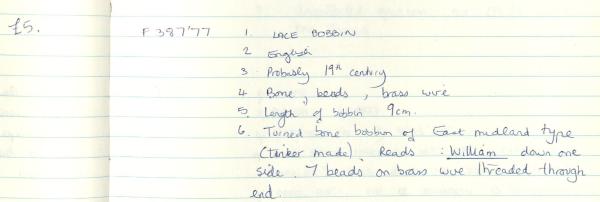 £5.
F 387'77 1. LACE BOBBIN
2 English
3 Probably 19th century
4 Bone, beads, brass wire
5. Length of bobbin 9cm.
6. Turned bone bobbin of East midland type
(Tinker made). Reads : William down one
side. 7 beads on brass wire threaded through
end.